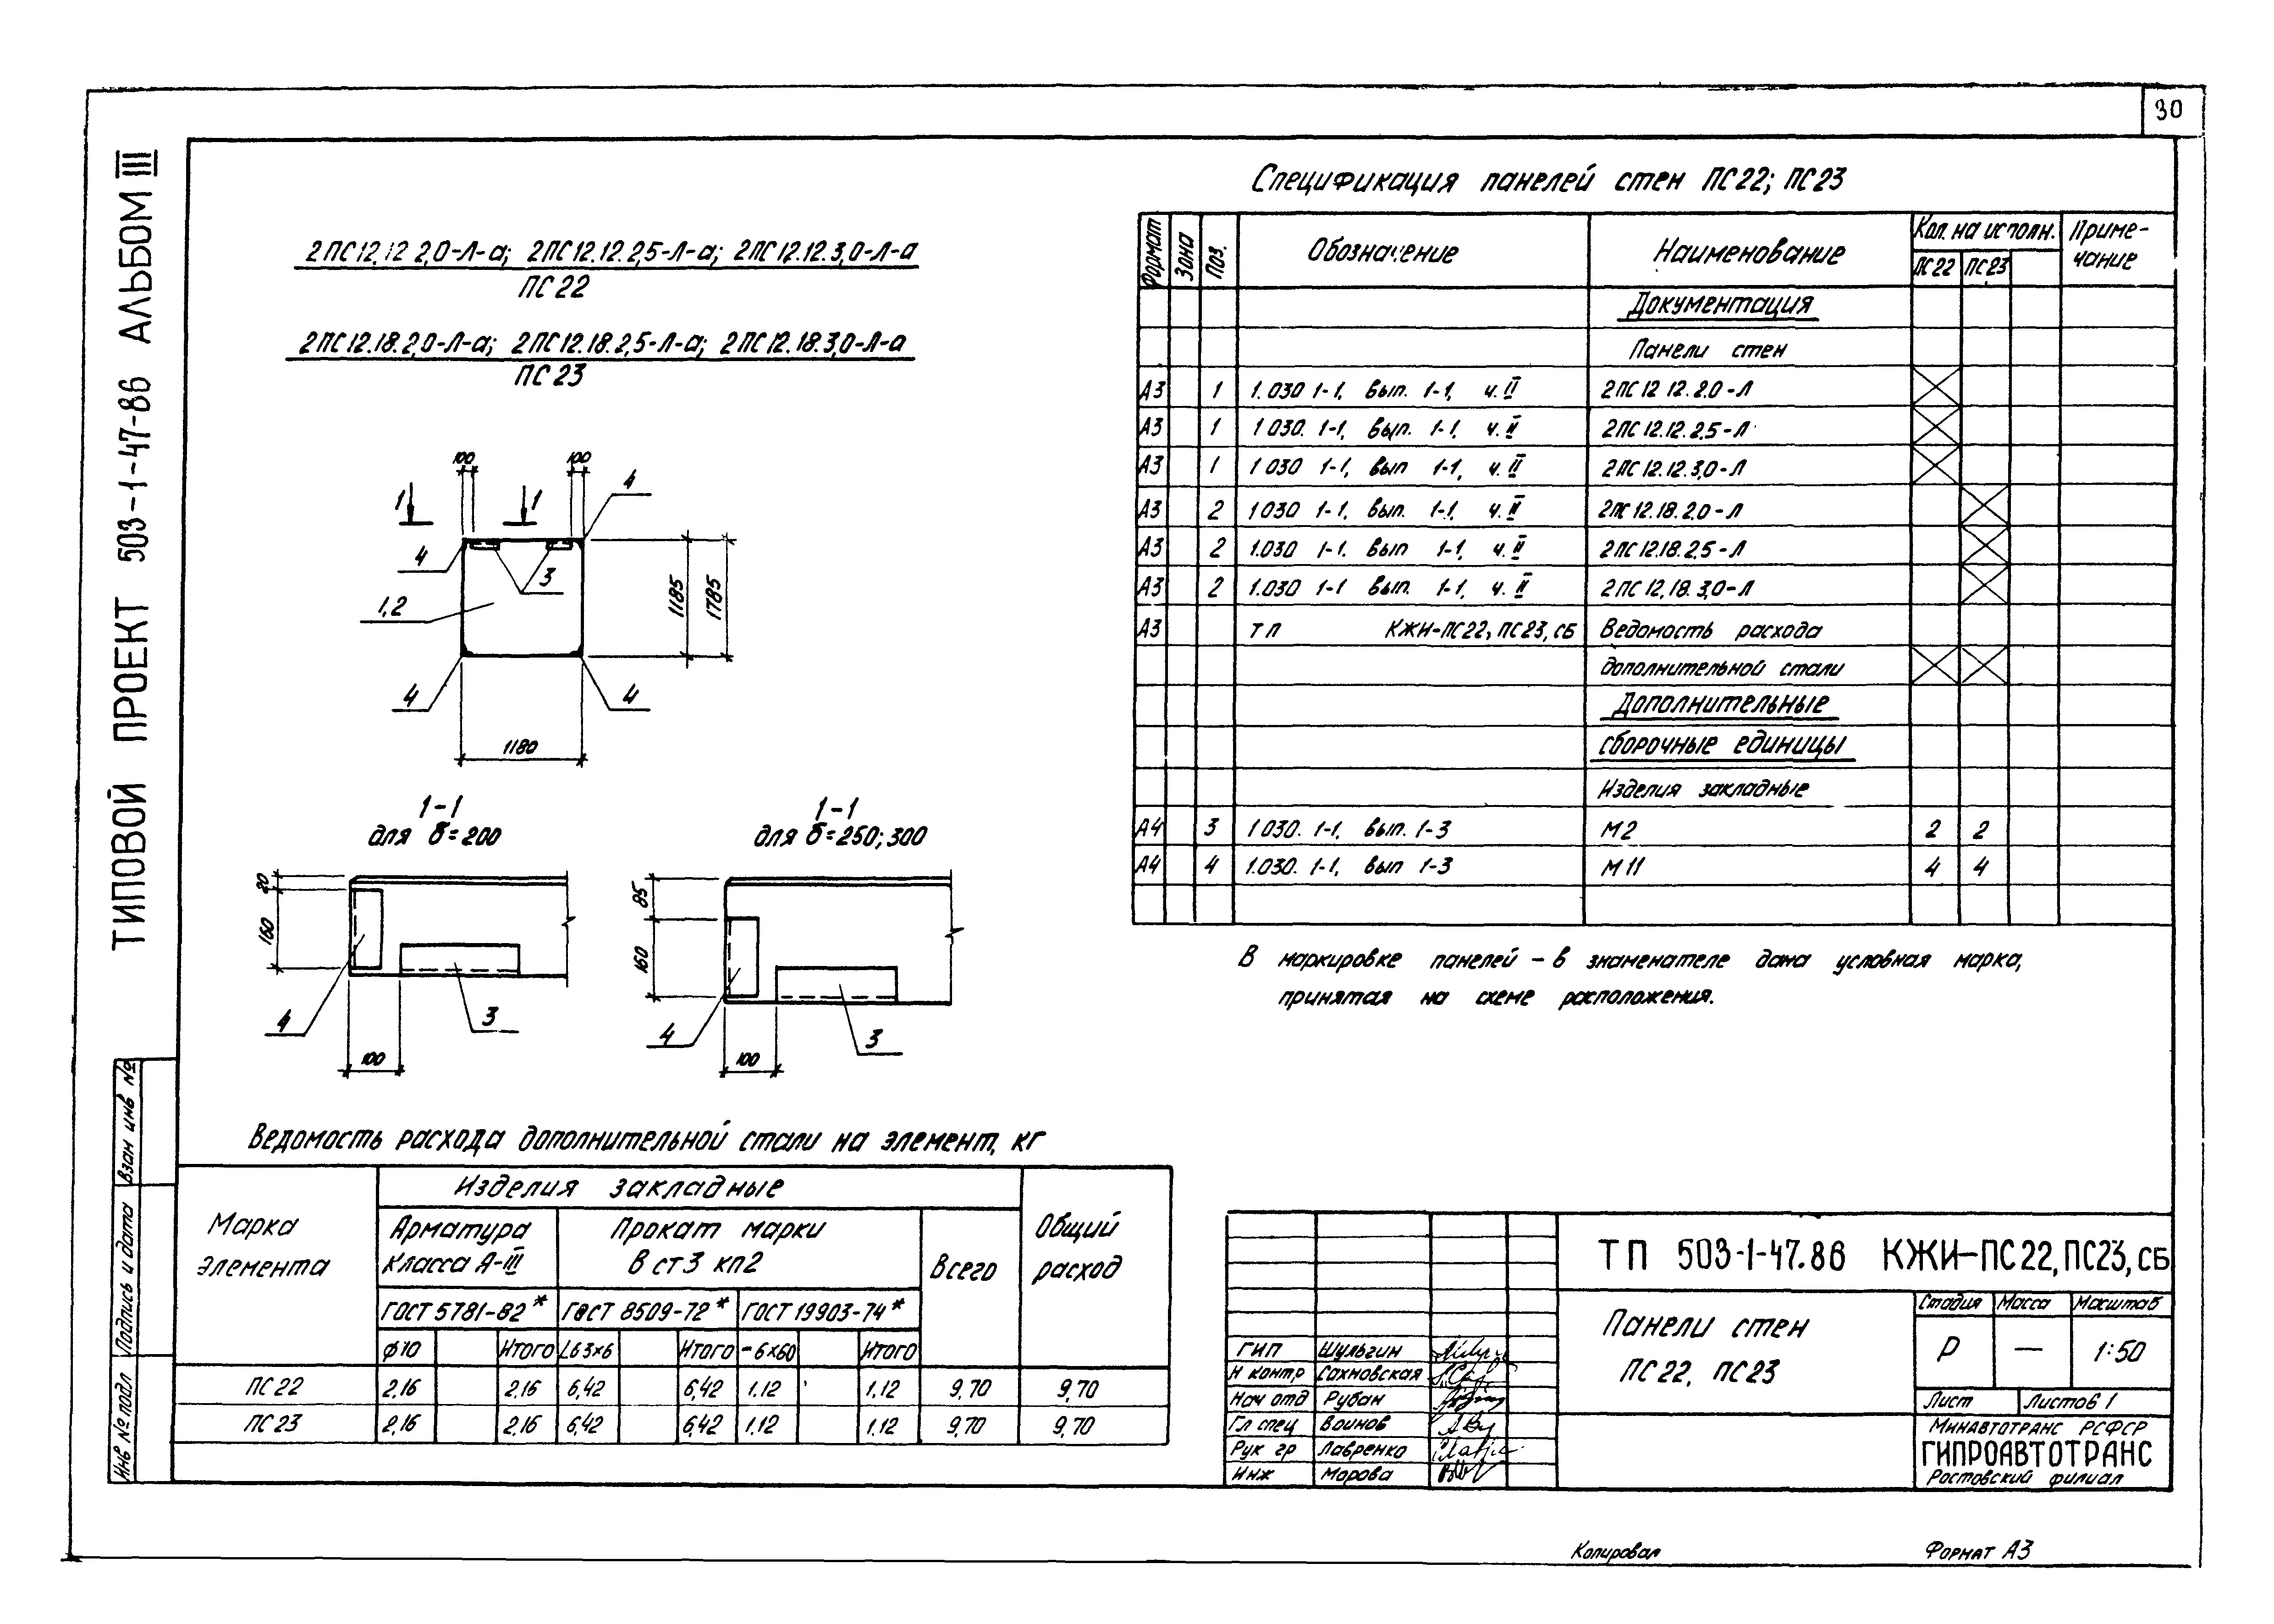 30
ТИПОВОЙ ПРОЕКТ 503-1-47-86 АЛЬБОМ III
2ПС12.12 2,0-Л-а; 2ПС12.12.2,5-Л-а; 2ПС12.12.3,0-Л-а
ПС22
2ПС12.18.2,0-Л-а; 2ПС12.18.2,5-Л-а; 2ПС12.18.3,0-Л-а
ПС23
100 100
1 1 4
4 3
1,2
1185 1785
4 4
1180
1-1
для δ=200
20
160
4 3
100
1-1
для δ=250; 300
85
160
4 3
100
Спецификация панелей стен ПС22; ПС23
Формат Зона Поз. Обозначение Наименование Кол. на исполн. Приме-
чание
ПС22 ПС23
Документация
Панели стен
А3 1 1.030 1-1, вып. 1-1, ч.II 2ПС12 12.2.0-Л
А3 1 1 030. 1-1, вып. 1-1, ч.II 2ПС12.12.2,5-Л
А3 1 1 030 1-1, вып 1-1, ч.II 2ПС12.12.3,0-Л
А3 2 1 030 1-1, вып. 1-1, ч.II 2ПС12.18.2.0-Л
А3 2 1.030 1-1. вып 1-1, ч.II 2ПС12.18.2,5-Л
А3 2 1.030 1-1 вып. 1-1, ч.II 2ПС12.18.3,0-Л
А3 ТП КЖИ-ПС22, ПС23, СБ Ведомость расхода
дополнительной стали
Дополнительные
сборочные единицы
Изделия закладные
А4 3 1 030. 1-1, вып. 1-3 М2 2 2
А4 4 1.030. 1-1, вып 1-3 М11 4 4
В маркировке панелей - в знаменателе дана условная марка,
принятая на схеме расположения.
Ведомость расхода дополнительной стали на элемент, кг
Марка
элемента
Изделия закладные
Общий
расход
Арматура
класса А-III
Прокат марки
В ст3 кп2
Всего
ГОСТ 5781-82* ГОСТ 8509-72* ГОСТ 19903-74*
ϕ10 Итого L63×6 Итого -6×60 Итого
ПС22 2,16 2,16 6,42 6,42 1.12 1.12 9,70 9,70
ПС23 2,16 2,16 6,42 6,42 1.12 1.12 9,70 9,70
Инв № подл Подпись и дата Взам инв №
ТП 503-1-47.86 КЖИ-ПС22, ПС23, СБ
Панели стен
ПС22, ПС23
Стадия Масса Масштаб
Р — 1:50
Лист Листов 1
Минавтотранс РСФСР
ГИПРОАВТОТРАНС
Ростовский филиал
ГИП Шульгин
Н контр Сахновская
Нач отд Рубан
Гл спец Воинов
Рук гр Лавренко
Инж Морова
Копировал Формат А3